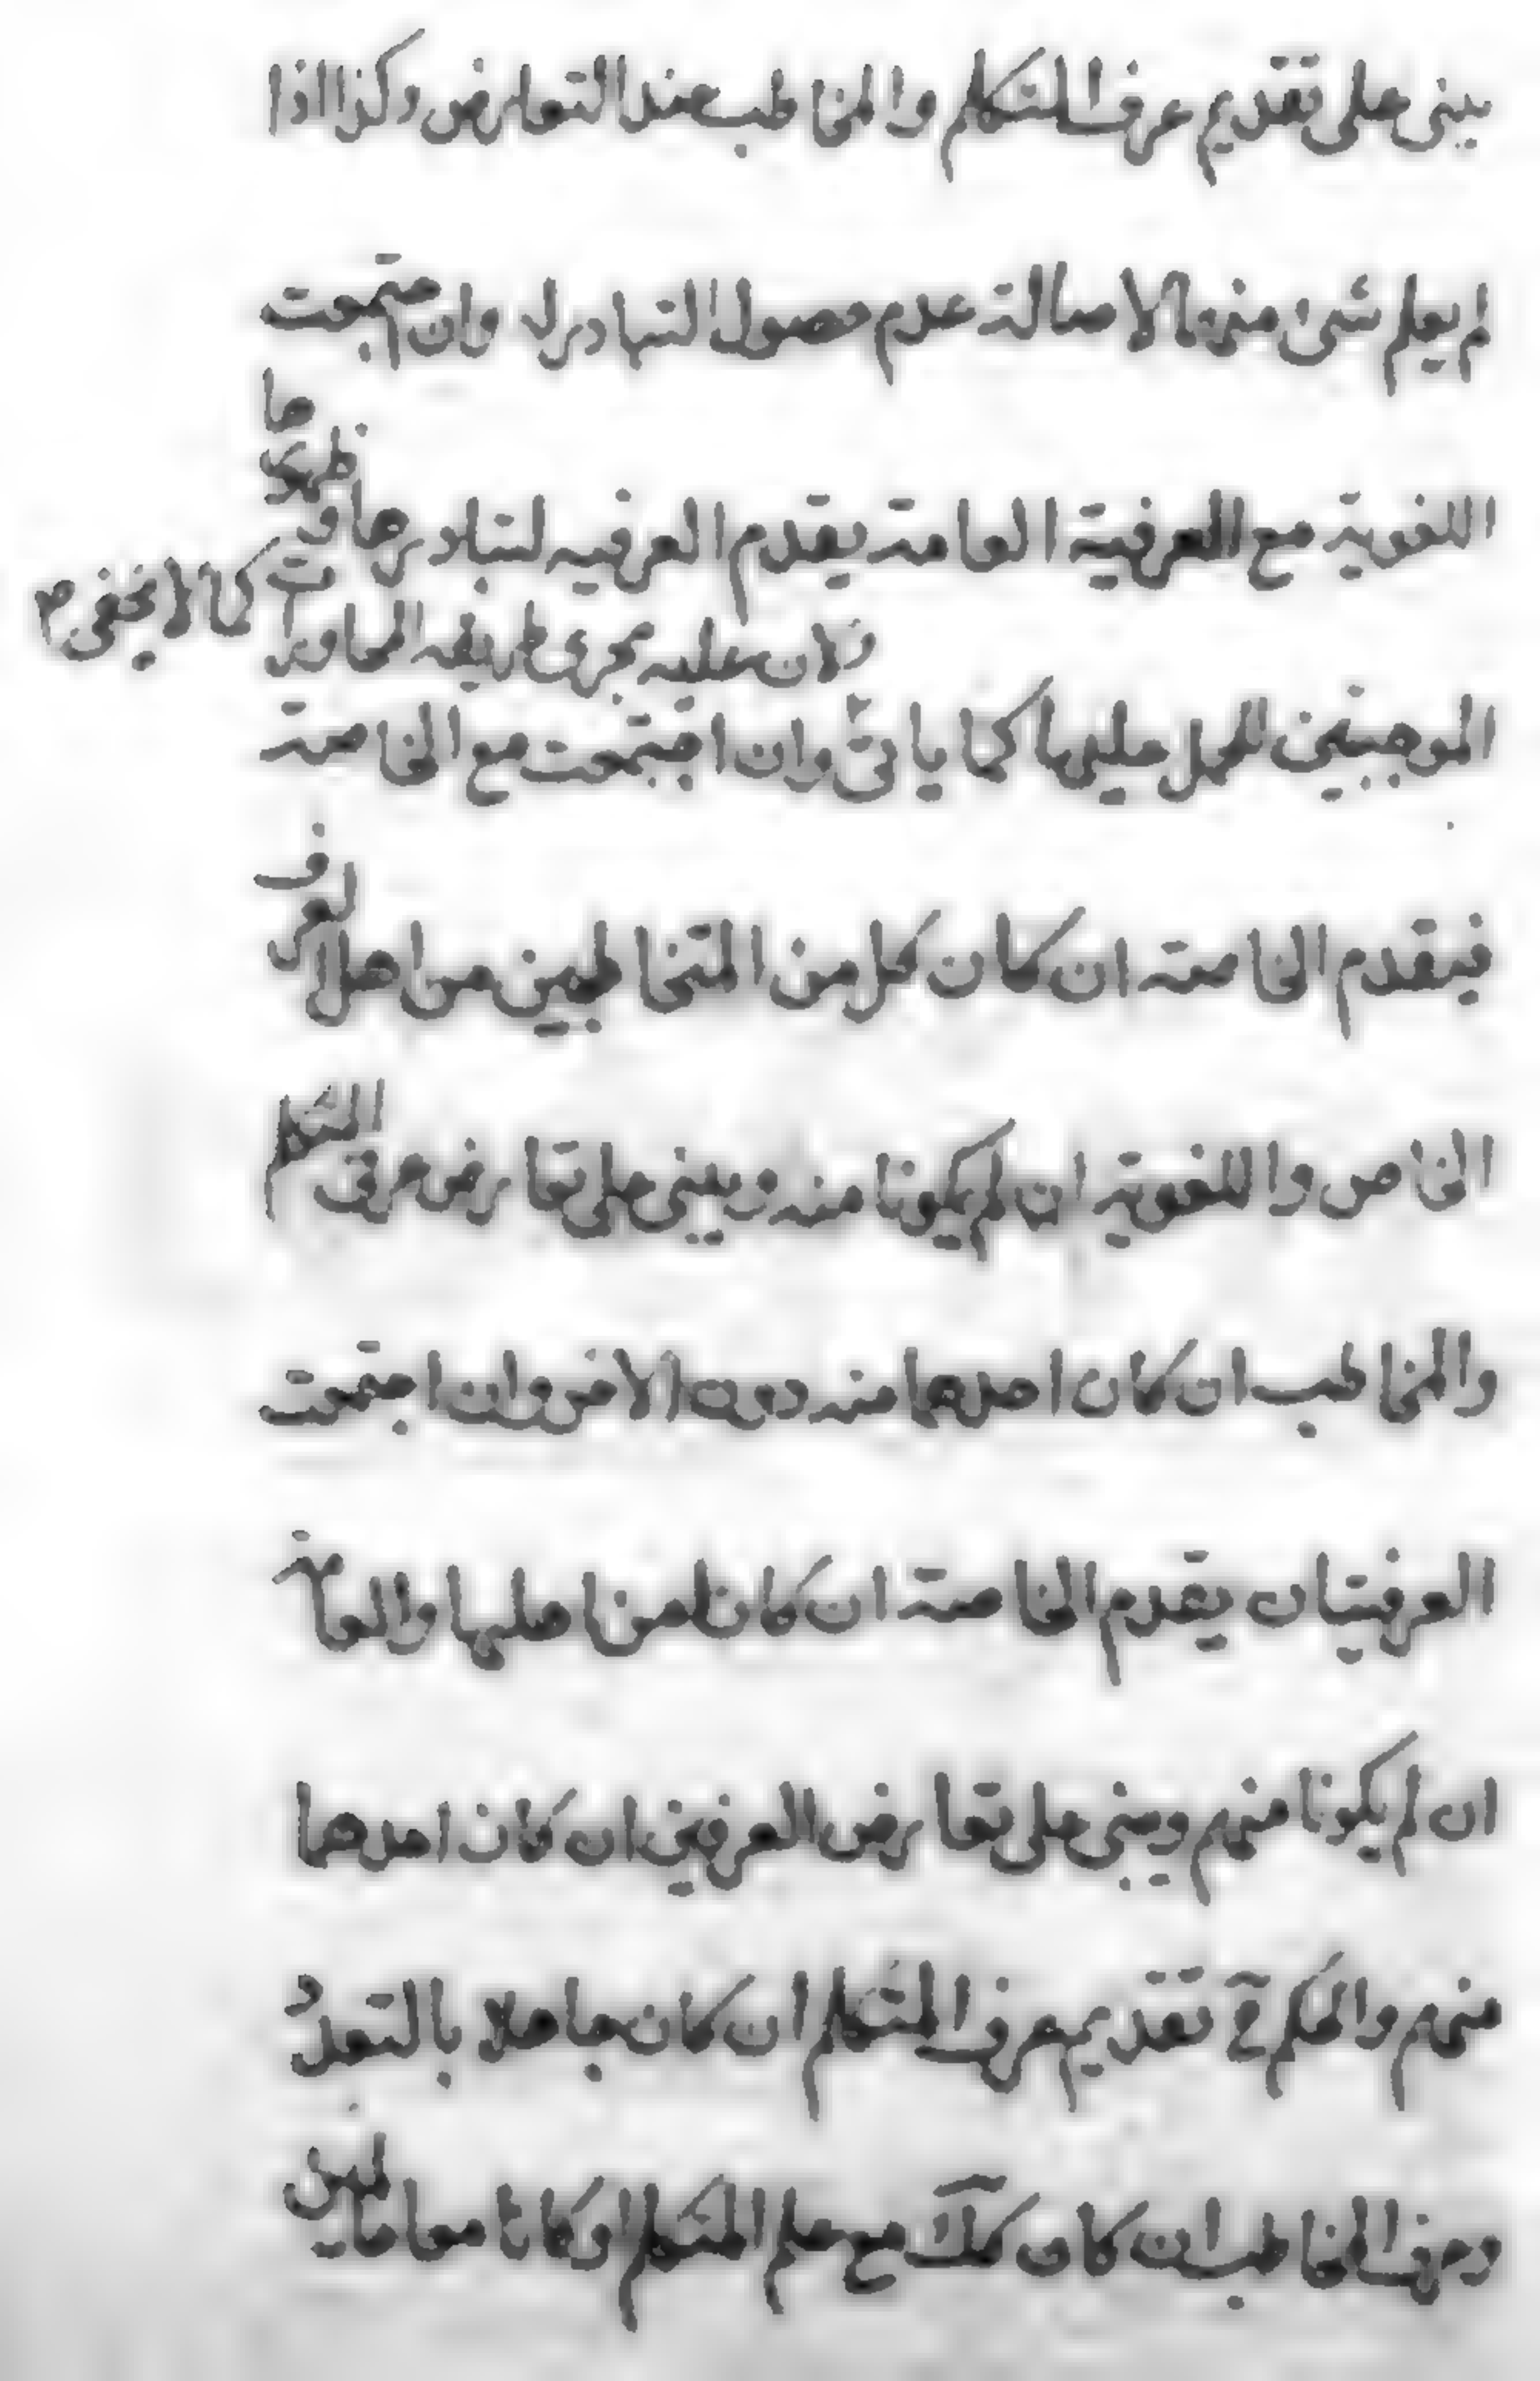 يبنى على تقديم عرف المتكلم والمخاطب عند التعارض وكذا اذا
لم يعلم شئ منهما لاصالة عدم حصول التبادر له وان اجتمعت
اللغوية مع العرفية العامة يقدم العرفيه لتبادرها و ظهورها
ولان عليه يجرى طريقه المحاورات كما لا يخفى م
الموجبتين للحمل عليها كما ياتى وان اجتمعت مع الخاصة
فيقدم الخاصة ان كان كل من المتخاطبين من اهل العرف
الخاص واللغوية ان لم يكونا منه ويبنى على تعارض عرفى المتكلم
والمخاطب ان كان احدهما منه دون الاخر وان اجتمعت
العرفيتان يقدم الخاصة ان كانا من اهلها والعامة
ان لم يكونا منهم ويبنى على تعارض العرفين ان كان احدهما
منهم والحكم فى تقديم عرف المتكلم ان كان جاهلا بالتعدد
وعرف المخاطب ان كان كك مع علم المتكلم او كانا معا عالمين